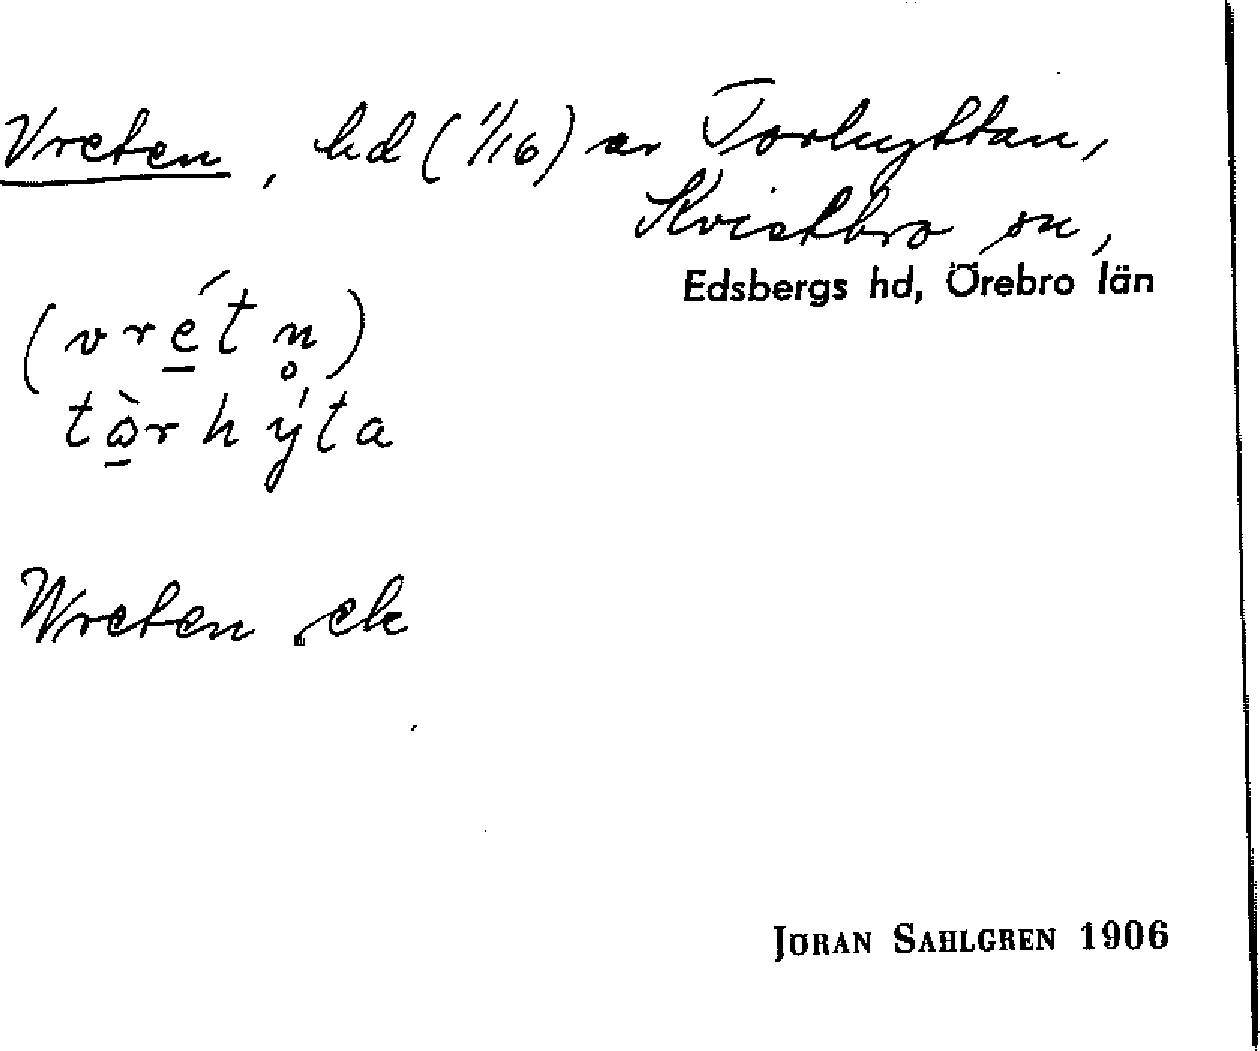 Vreten, hd (1/16) av Torhyttan,
Kvistbro sn,
Edsbergs hd, Örebro län
(vré̲tn̥)
tὼ̲rhýta
Wreten ek
JÖRAN SAHLGREN 1906